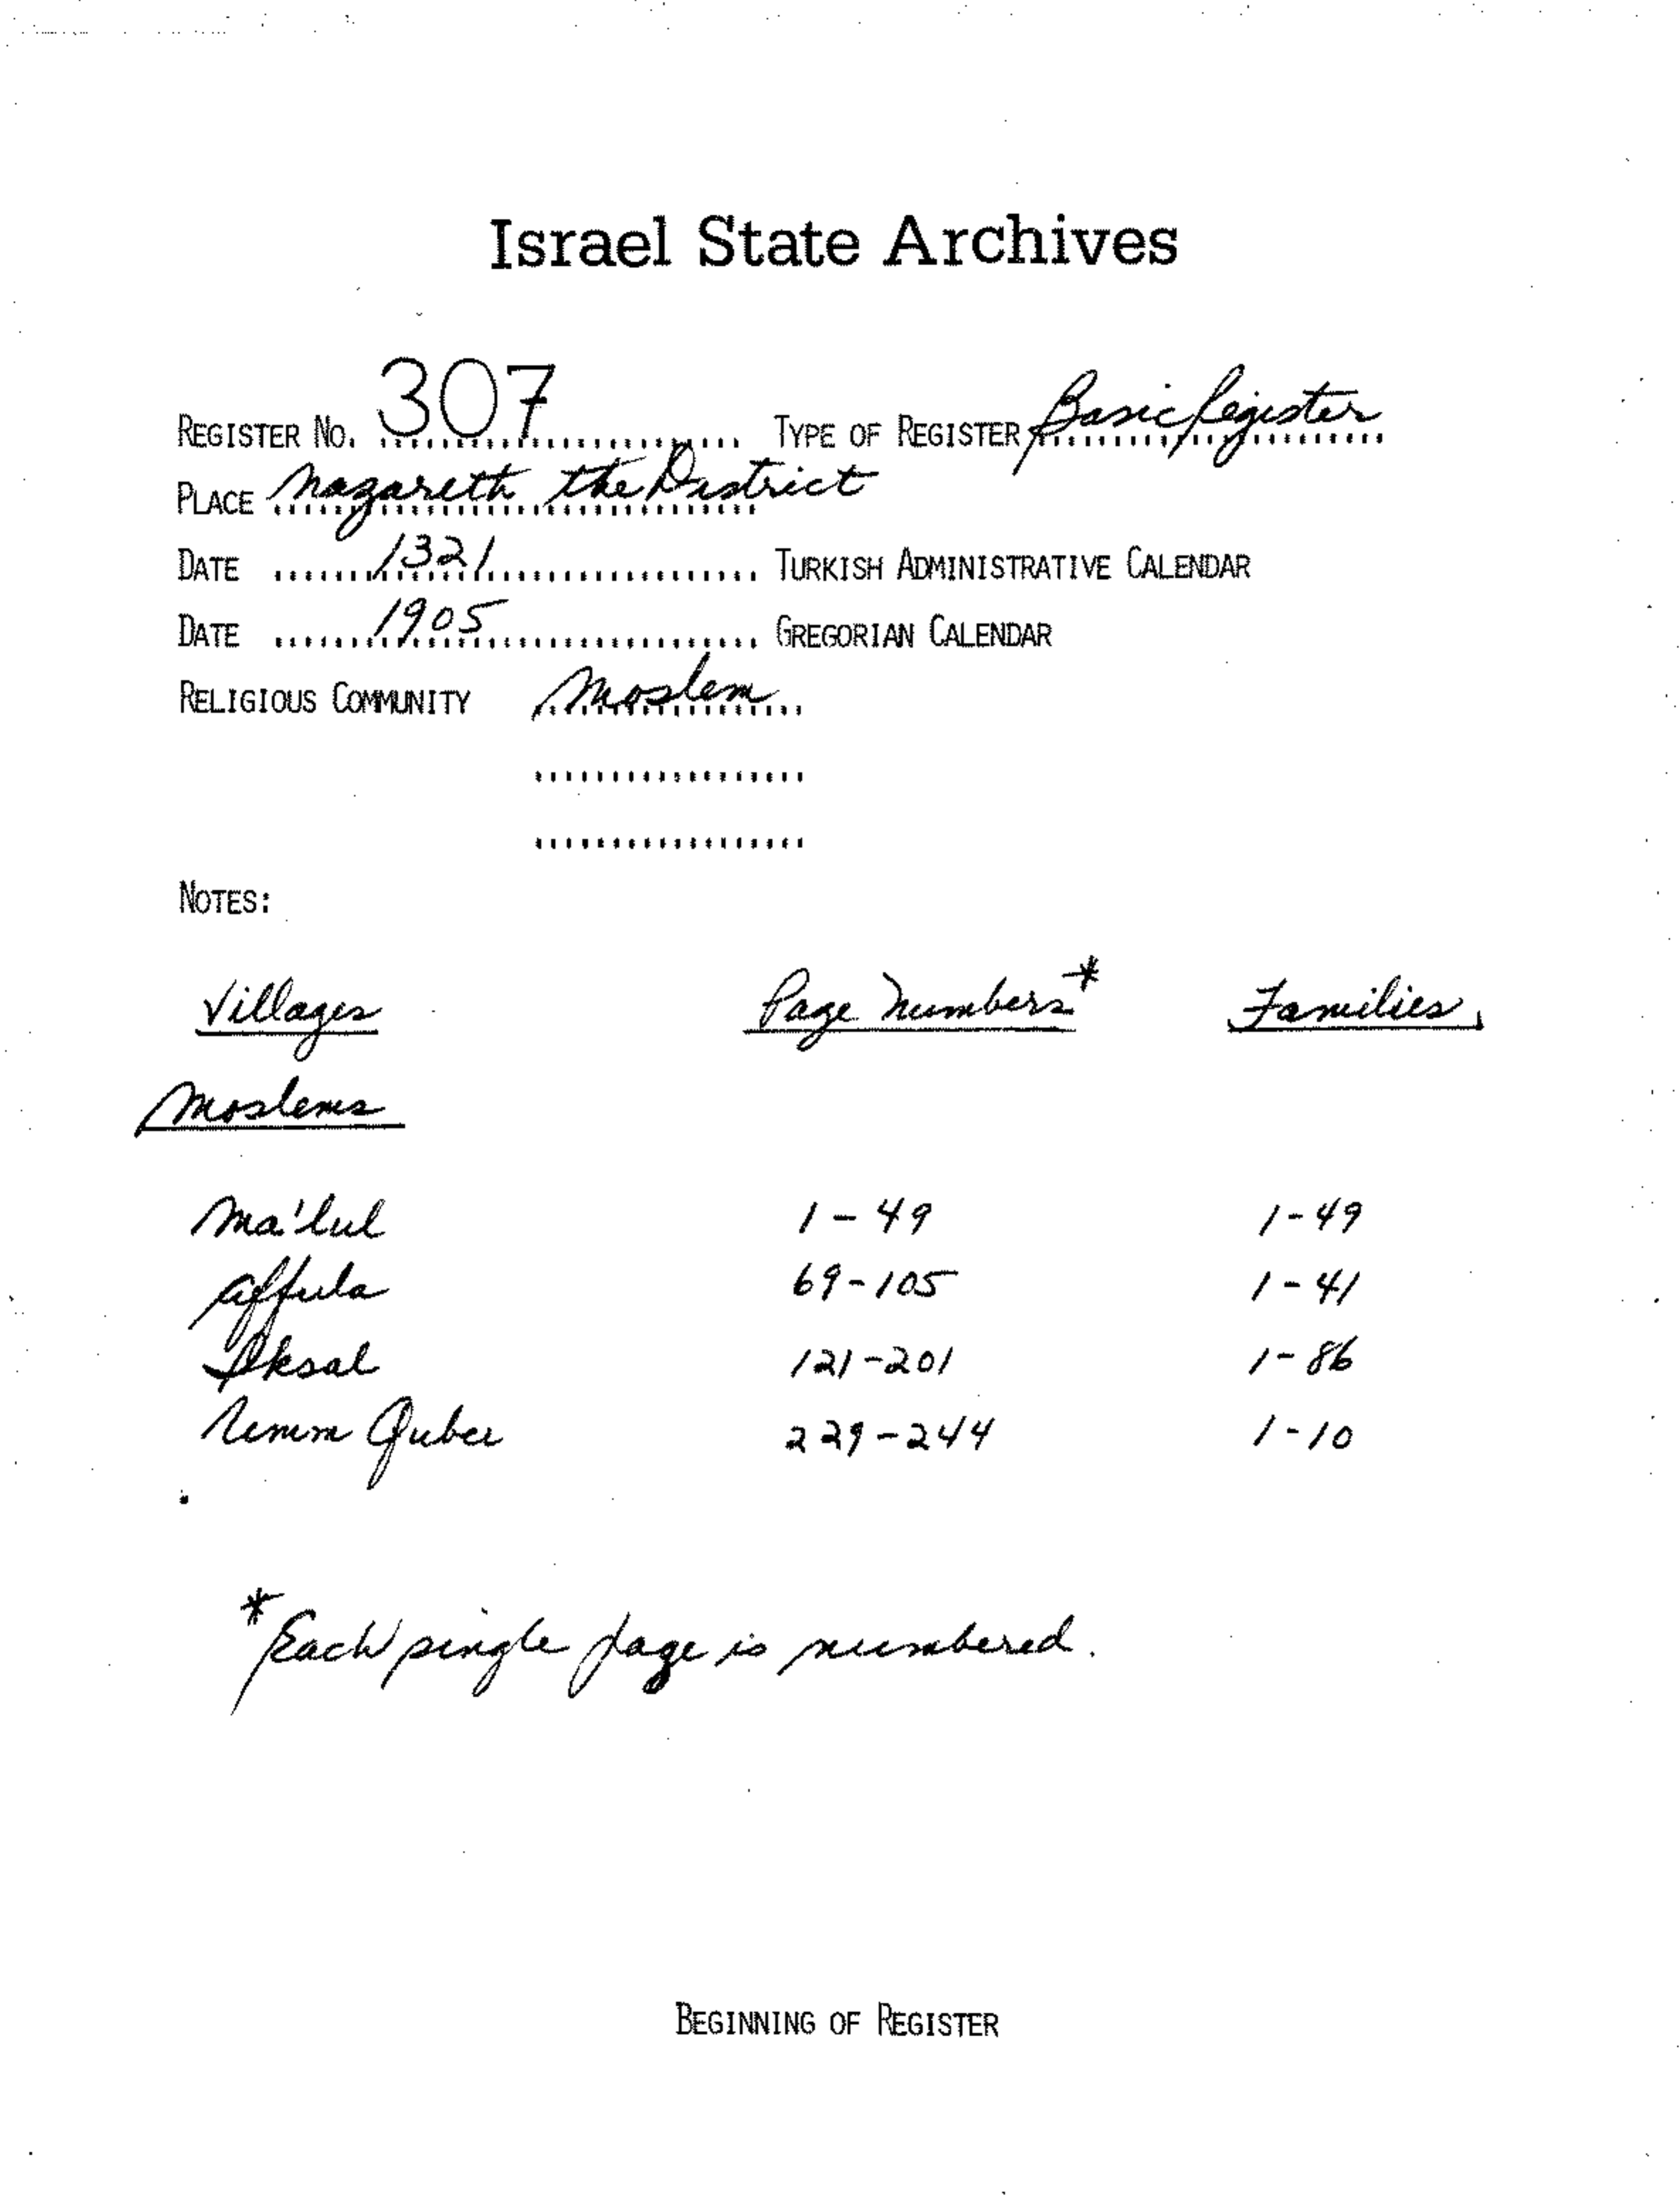 Israel State Archives
REGISTER NO. 307 TYPE OF REGISTER Basic Register
PLACE Nazareth the District
DATE 1321 TURKISH ADMINISTRATIVE CALENDAR
DATE 1905 GREGORIAN CALENDAR
RELIGIOUS COMMUNITY Moslem
NOTES:
Villages Page Numbers* Families
Moslems
Ma'lul 1-49 1-49
Affula 69-105 1-41
Iksal 121-201 1-86
229-244 1-10
*Each single page is numbered.
BEGINNING OF REGISTER